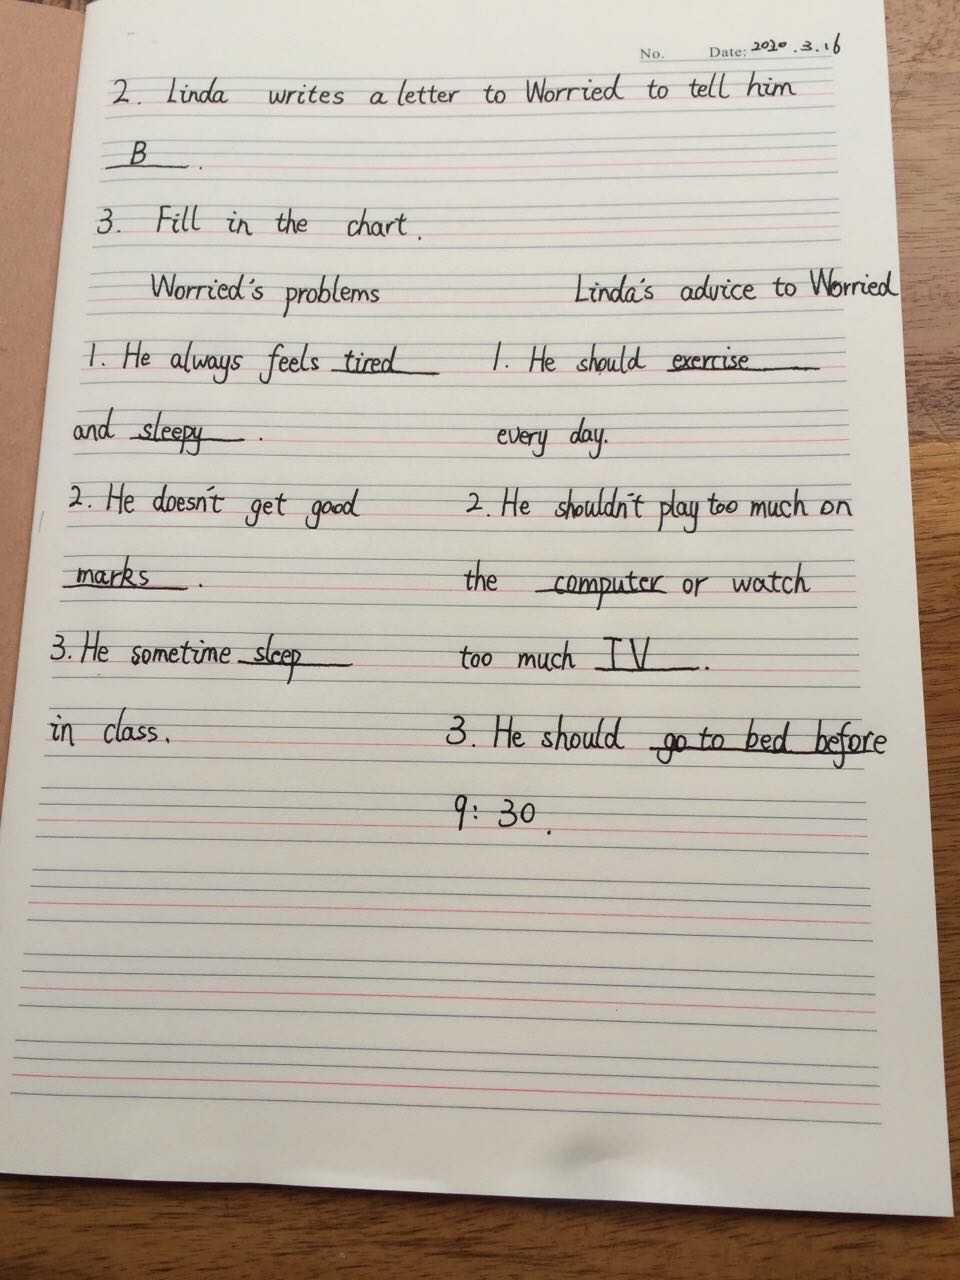 No. Date: 2020.3.16
2. Linda writes a letter to Worried to tell him
B.
3. Fill in the chart.
Worried's problems Linda's advice to Worried
1. He always feels tired 1. He should exercise
and sleepy. every day.
2. He doesn't get good 2. He shouldn't play too much on
marks. the computer or watch
3. He sometime sleep too much TV.
in class. 3. He should go to bed before
9:30.